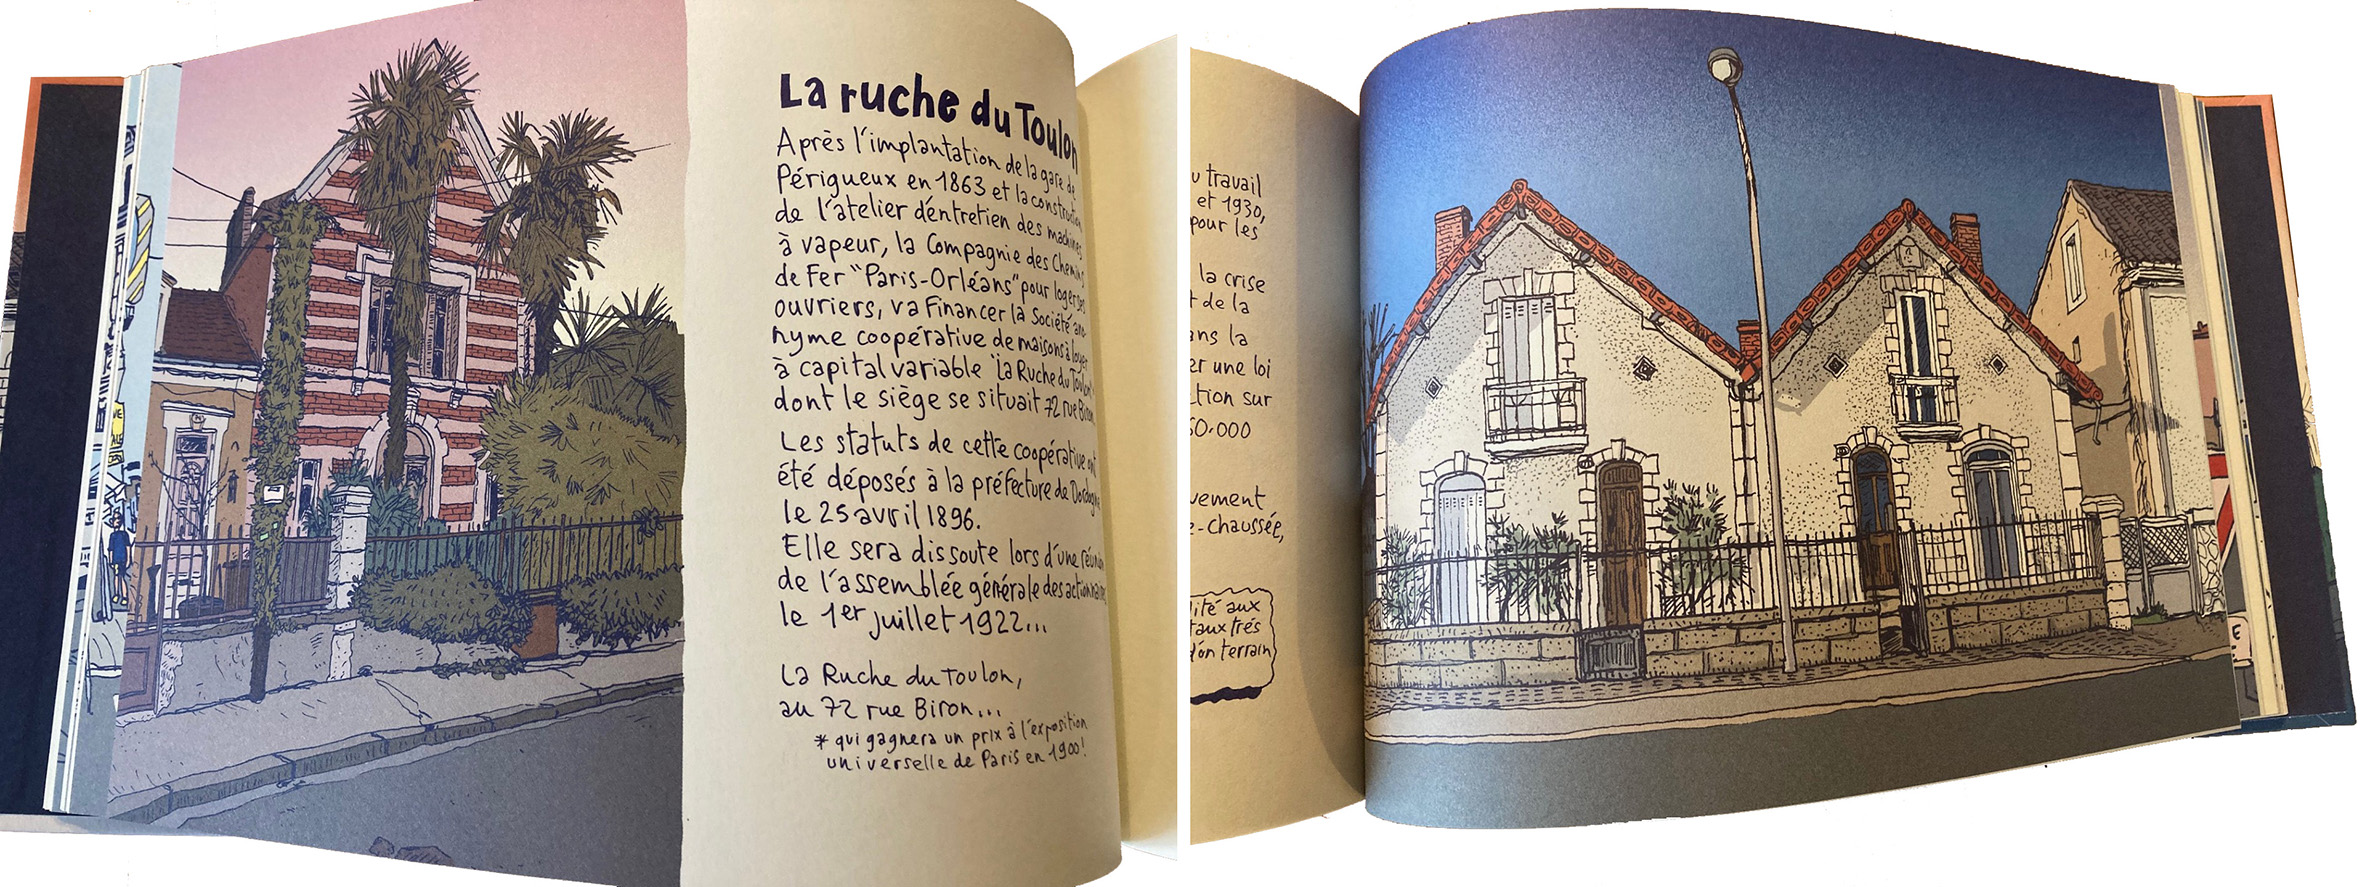 La ruche du Toulon
Après l'implantation de la gare de
Périgueux en 1863 et la construction
de l'atelier d'entretien des machines
à vapeur, la Compagnie des Chemins
de Fer "Paris-Orléans" pour loger ses
ouvriers, va financer la Société ano-
nyme coopérative de maisons à loyer
à capital variable "La Ruche du Toulon"
dont le siège se situait 72 rue Biron.
Les statuts de cette coopérative ont
été déposés à la préfecture de Dordogne
le 25 avril 1896.
Elle sera dissoute lors d'une réunion
de l'assemblée générale des actionnaires,
le 1er juillet 1922...
La Ruche du Toulon,
au 72 rue Biron...
* qui gagnera un prix à l'exposition
universelle de Paris en 1900!
u travail
et 1930,
pour les
la crise
t de la
ans la
er une loi
ction sur
50.000
vement
e-chaussée,
lité aux
taux très
d'on terrain